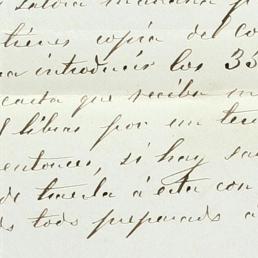 mañana
tienes copia del co
introducir los 33
carta que reciba m
libras por un ter
entonces, si hay
de traerla á esta con
todo preparado á